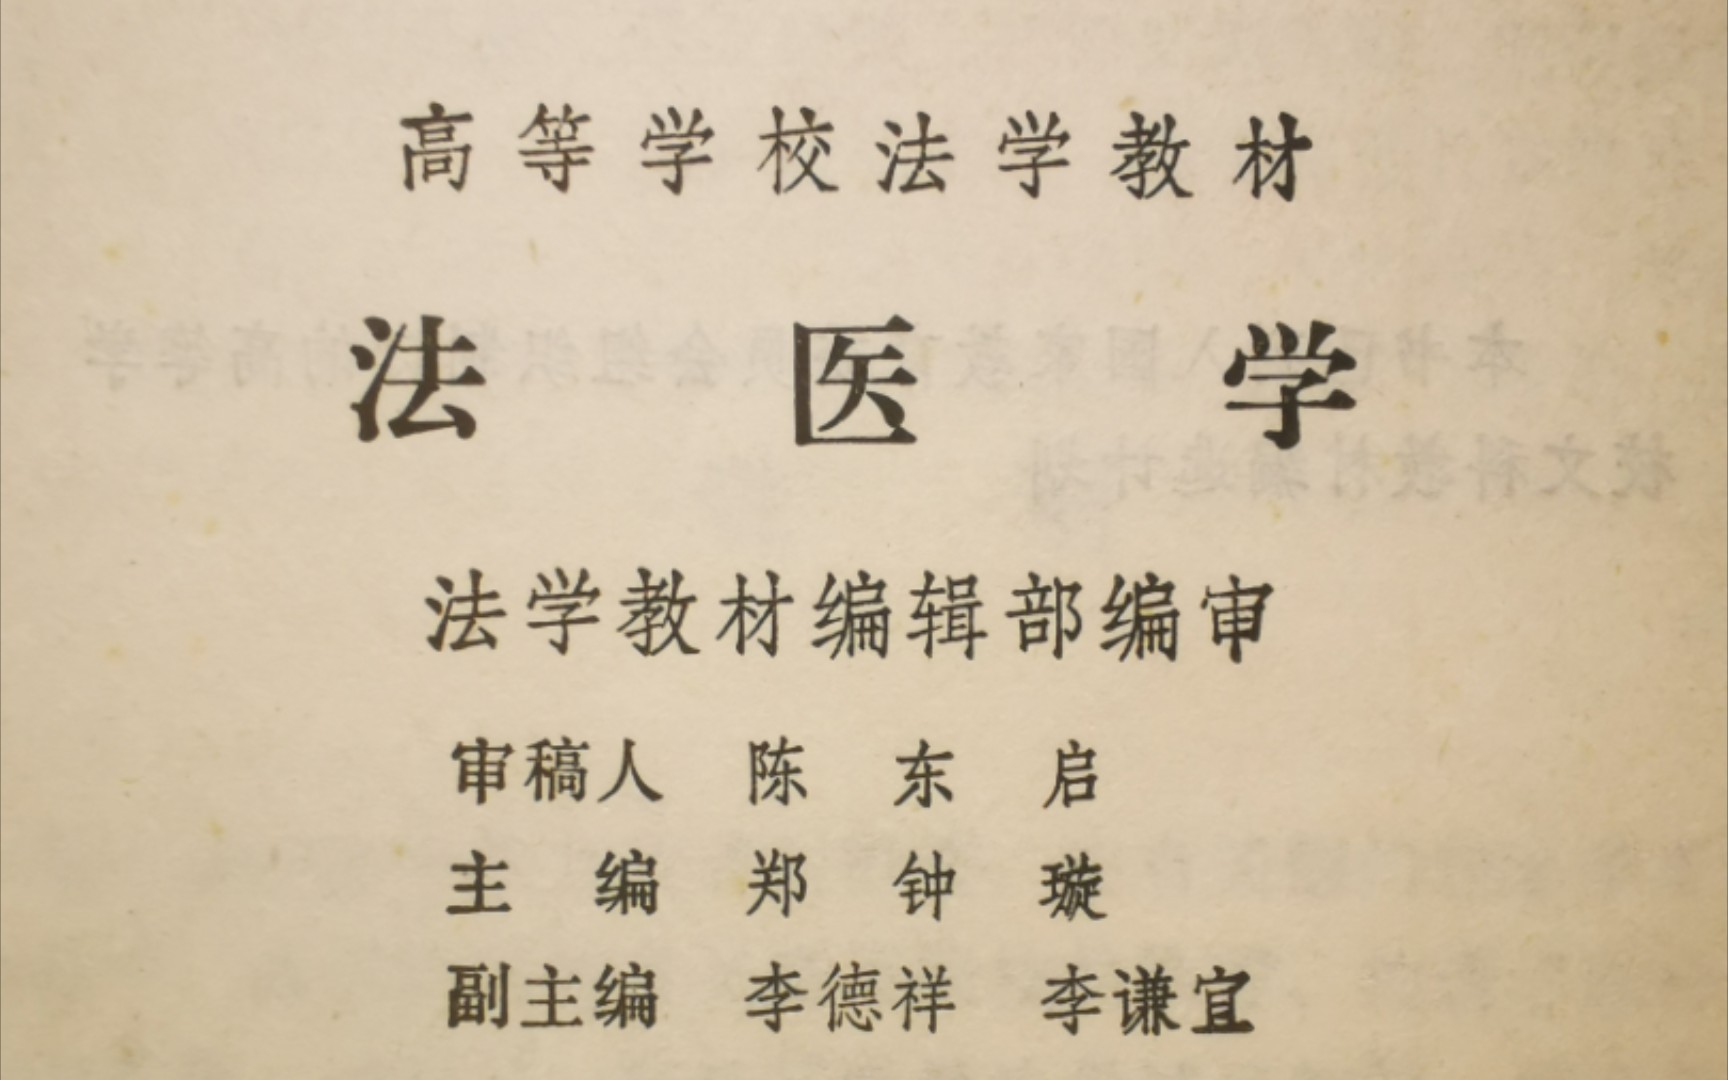 高等学校法学教材
法医学
法学教材编辑部编审
审稿人 陈东启
主编 郑钟璇
副主编 李德祥 李谦宜